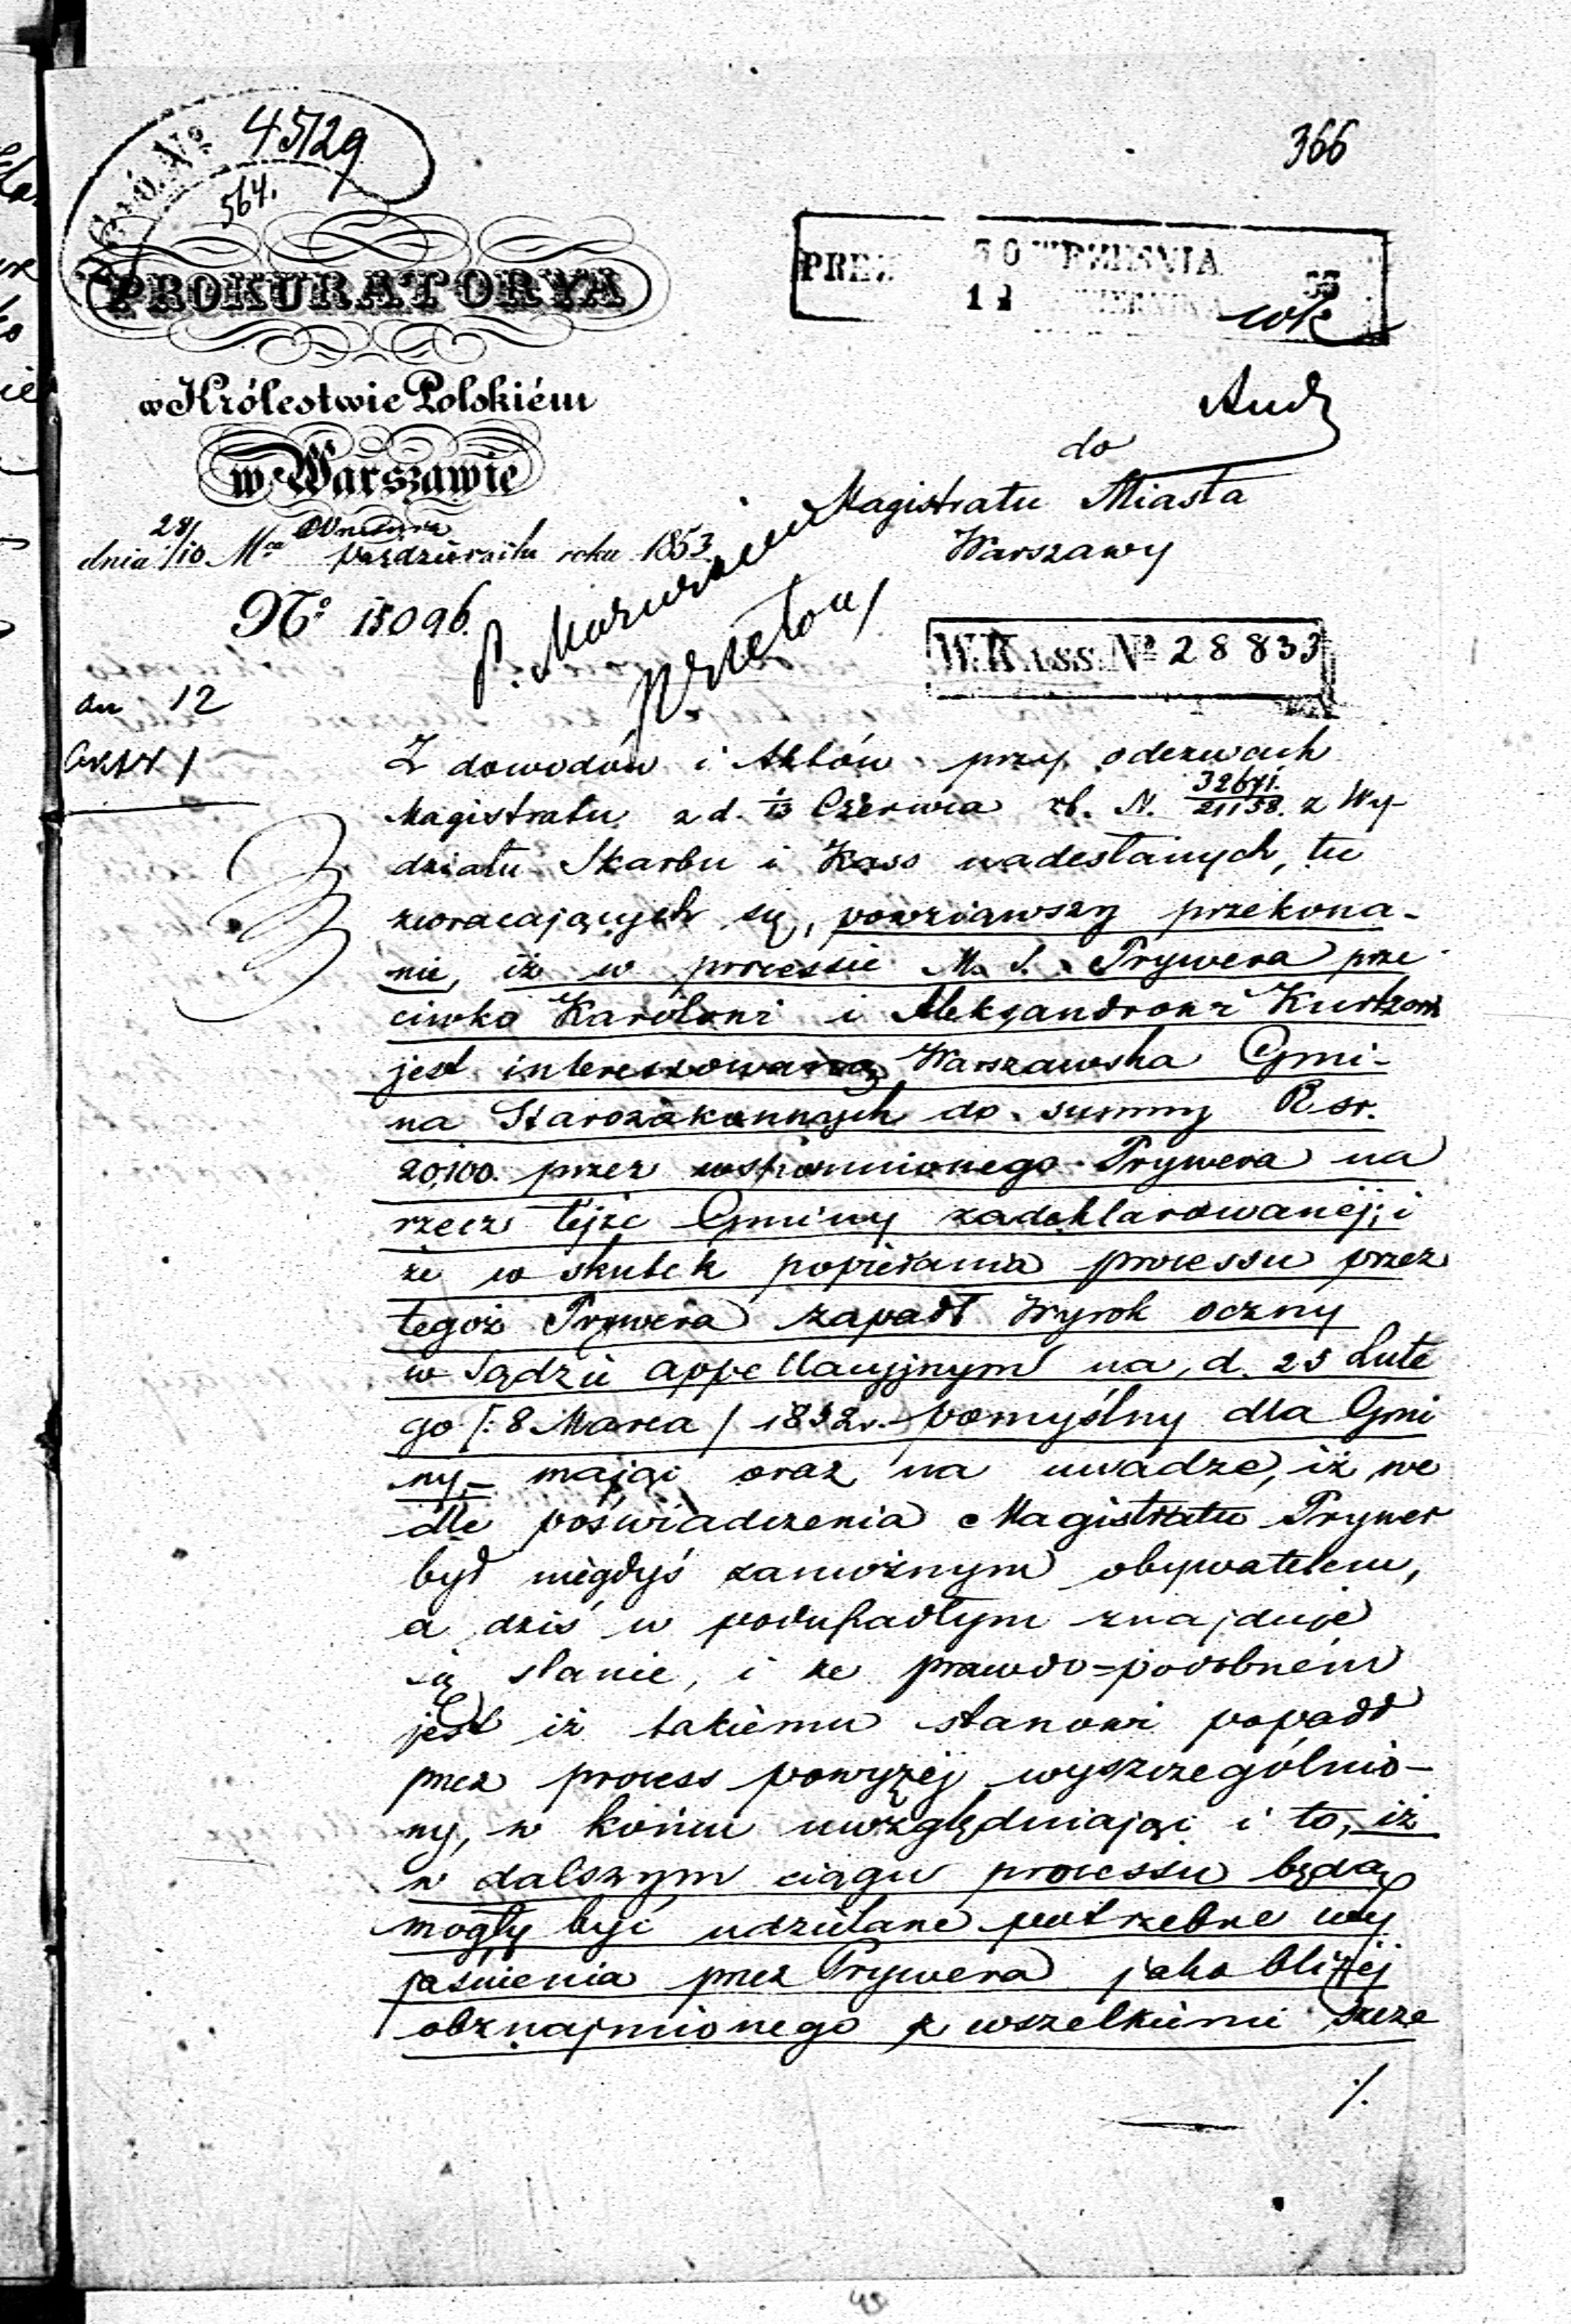 366
45129
564.
PROKURATORYA
w Królestwie Polskiém
w Warszawie
dnia 28/10 Mca Września Października roku 1853
No 15096.
PREZ 30 WRZEŚNIA 53
12
do
Magistratu Miasta
Warszawy
W. KASS. No 28833
an 12
Z dowodów i Aktów przy odezwach
Magistratu z d. 1/13 Czerwca rb. N. z Wy-
działu Skarbu i Kass nadesłanych, tu
zwracających się, powziąwszy przekona-
nie, iż w processie M. S. Prywera prze
ciwko Karolowi i Aleksandrowi Kurtzom
jest interessowaną Warszawska Gmi-
na Starozakonnych do summy Rsr.
20,100. przez wspomnionego Prywera na
rzecz tejże Gminy zadeklarowanej; i
że w skutek popierania processu przez
tegoż Prywera zapadł Wyrok oczny
w Sądzie Appellacyjnym na d. 25 Lute
go /: 8 Marca / 1852 r. pomyślny dla Gmi
ny,- mając oraz na uwadze, iż we
dle poświadczenia Magistratu Prywer
był niegdyś zamożnym obywatelem,
a dziś w podupadłym znajduje
się stanie, i że prawdo=podobném
jest iż takiemu stanowi popadł
przez process powyżéj wyszczególnio-
ny, w końcu uwzględniając i to, iż
w dalszym ciągu processu będą
mogły być udzielane potrzebne wy
jaśnienia przez Prywera jako bliżéj
obznajmionego z wszelkiemi szcze
./.